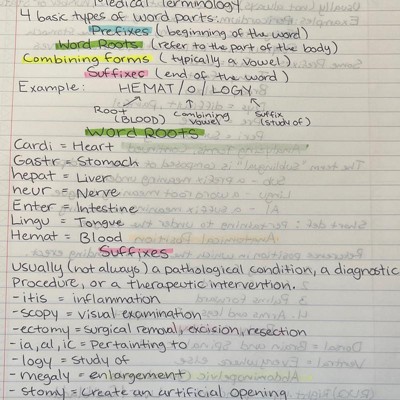 Medical Terminology
4 basic types of word parts:
Prefixes (beginning of the word)
Word Roots (refer to the part of the body)
Combining forms (typically a vowel)
Suffixes (end of the word)
Example: HEMAT/O/LOGY
Root (BLOOD) Combining vowel Suffix (study of)
WORD ROOTS
Cardi = Heart
Gastr = Stomach
hepat = Liver
neur = Nerve
Enter = Intestine
Lingu = Tongue
Hemat = Blood
Suffixes
usually (not always) a pathological condition, a diagnostic
Procedure, or a therapeutic intervention.
-itis = inflammation
-scopy = visual examination
-ectomy = surgical removal, excision, resection
-ia, al, ic = pertaining to
-logy = study of
-megaly = enlargement
-stomy = create an artificial opening